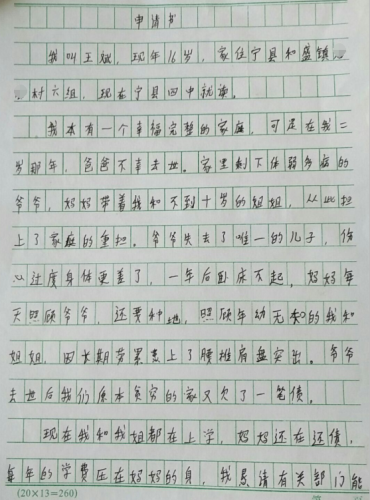 申请书
我叫王斌，现年16岁，家住宁县和盛镇
村六组，现在宁县四中就读。
我本有一个幸福完整的家庭，可是在我二
岁那年，爸爸不幸去世。家里剩下体弱多病的
爷爷，妈妈带着我和不到十岁的姐姐，从此担
上了家庭的重担。爷爷失去了唯一的儿子，伤
心过度身体更差了，一年后卧床不起，妈妈每
天照顾爷爷，还要种地，照顾年幼无知的我和
姐姐，因长期劳累患上了腰椎肩盘突出。爷爷
去世后我们原本贫穷的家又欠了一笔债。
现在我和我姐都在上学，妈妈还在还债，
每年的学费压在妈妈的身，我恳请有关部门能
(20×13=260)